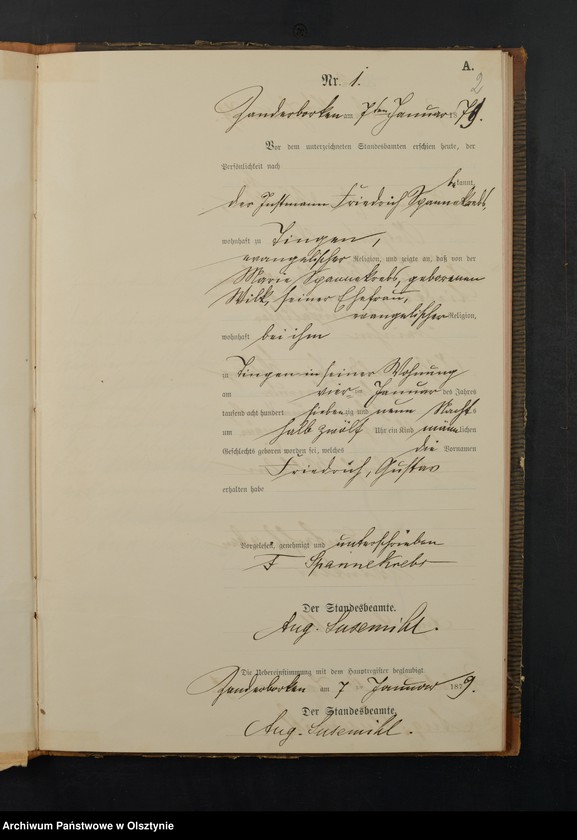 A.
2
Nr. 1.
Zanderborken am 7ten Januar 1879.
Vor dem unterzeichneten Standesbeamten erschien heute, der
Persönlichkeit nach
bekannt,
der Instmann Friedrich Spannekrebs,
wohnhaft zu Tingen,
evangelischer Religion, und zeigte an, daß von der
Marie Spannekrebs, geborenen
Wilk, seiner Ehefrau,
evangelischer Religion,
wohnhaft bei ihm
zu Tingen in seiner Wohnung
am vier Januar des Jahres
tausend acht hundert siebenzig und neun Nachts
um halb zwölf Uhr ein Kind männlichen
Geschlechts geboren worden sei, welches die Vornamen
Friedrich, Gustav
erhalten habe
Vorgelesen, genehmigt und unterschrieben
F Spannekrebs
Der Standesbeamte.
Aug. Susemihl.
Die Uebereinstimmung mit dem Hauptregister beglaubigt
Zanderborken am 7 Januar 1879.
Der Standesbeamte.
Aug. Susemihl.
Archiwum Państwowe w Olsztynie